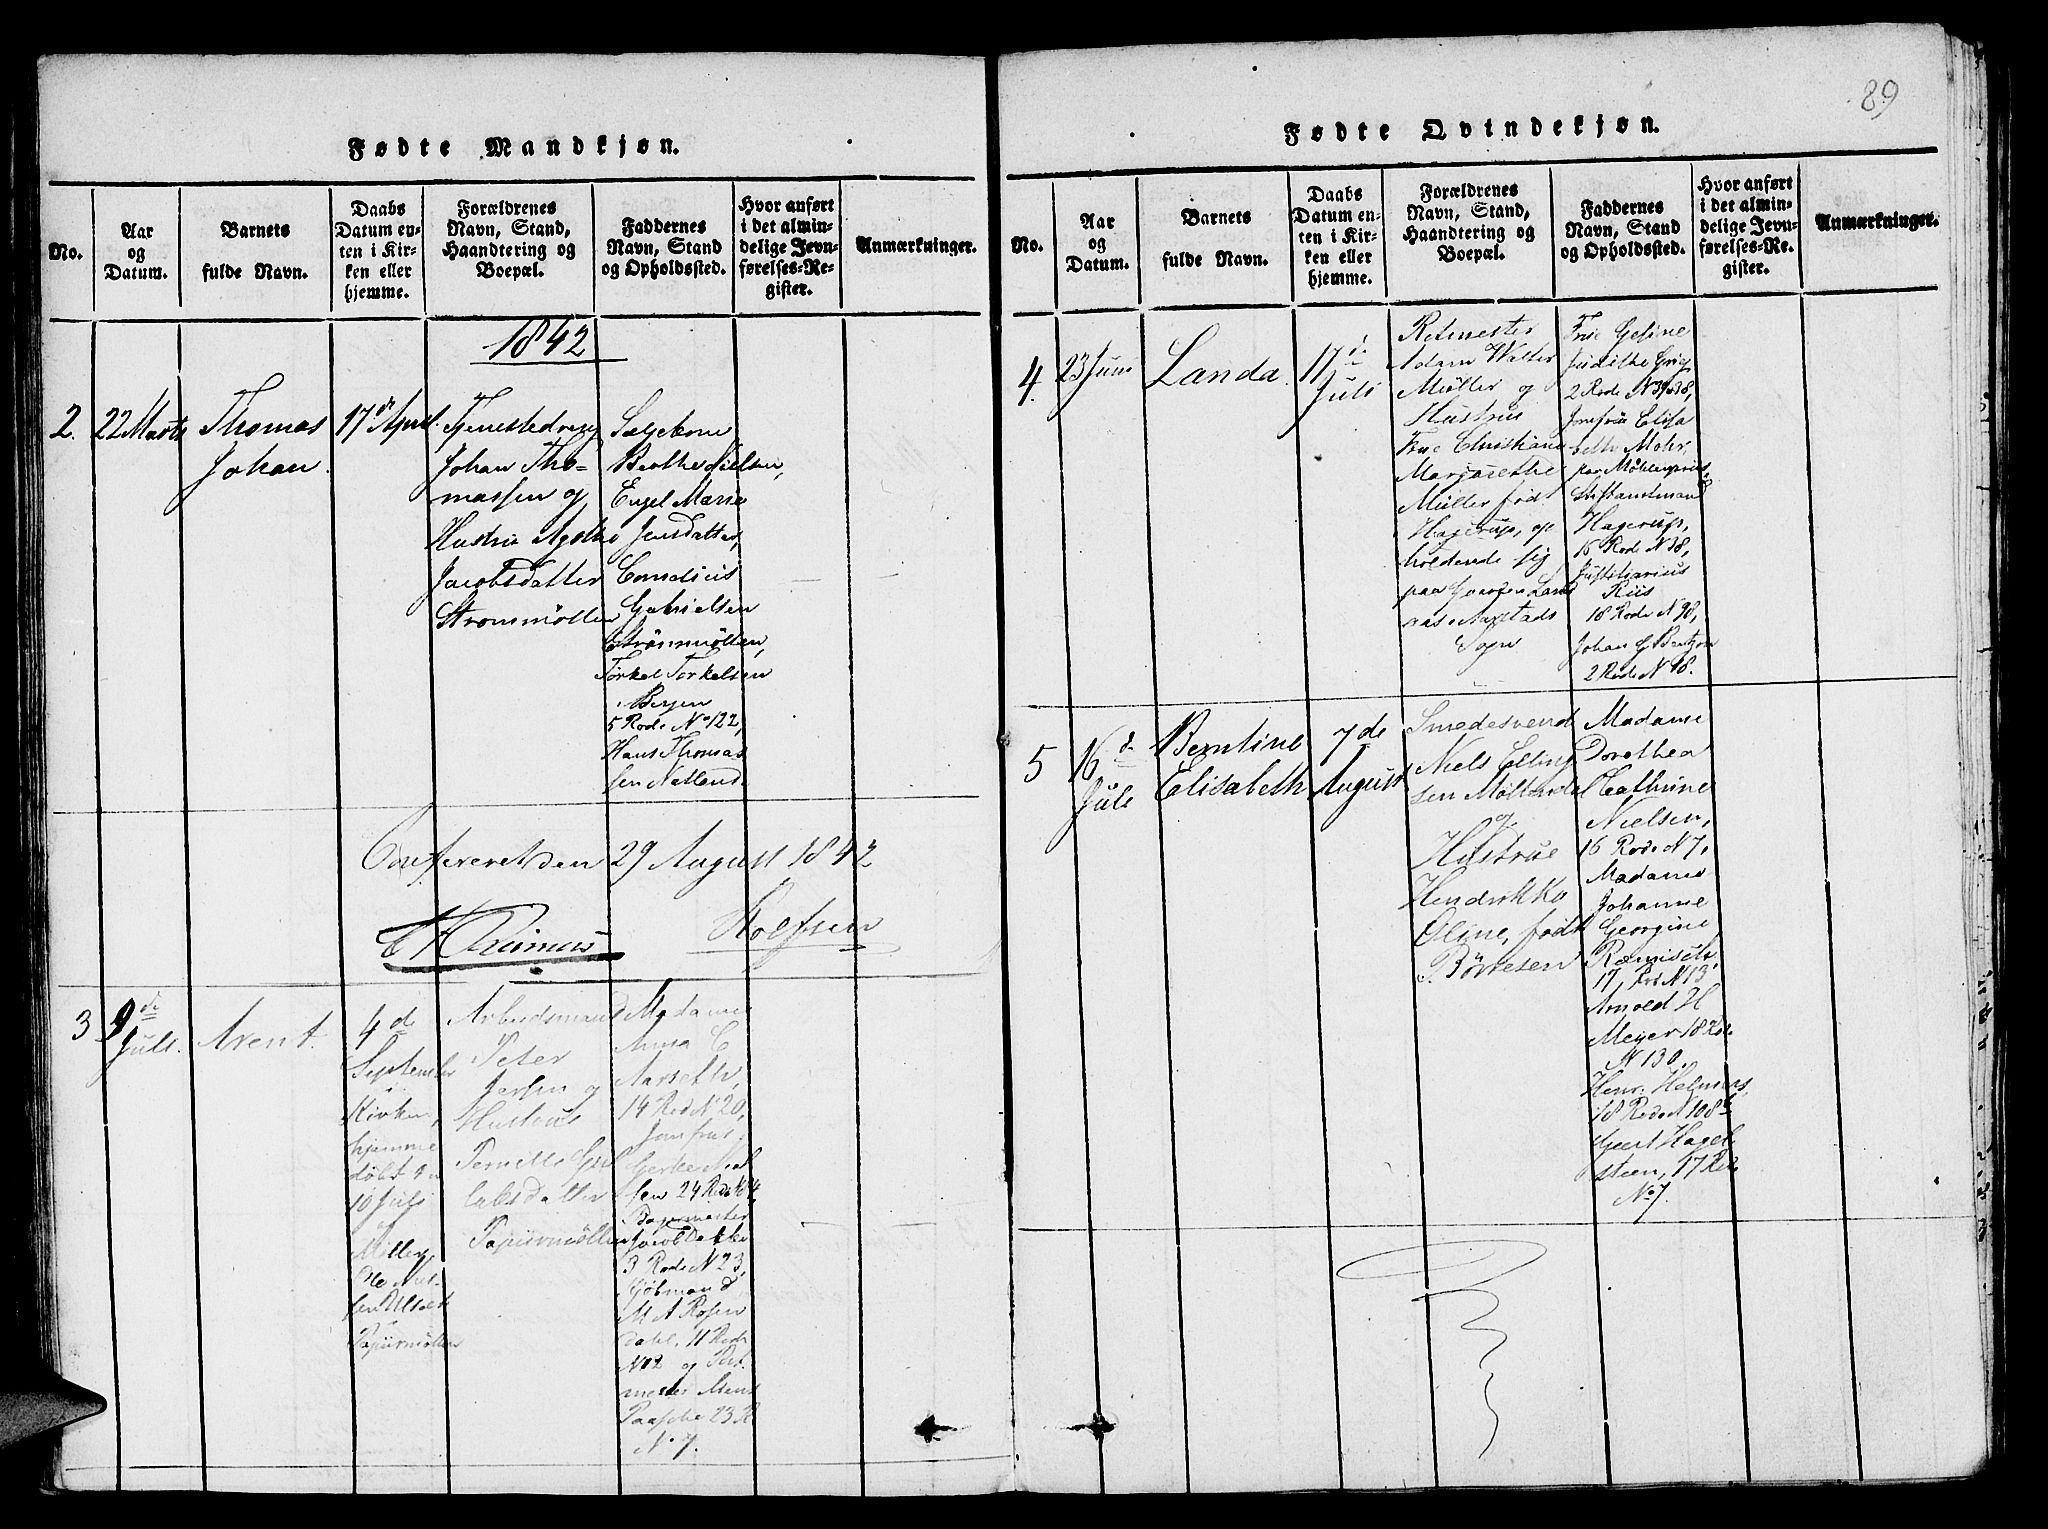 89
Fødte Mandkjøn.
No.
Aar
og
Datum.
Barnets
fulde Navn.
Daabs
Datum en-
ten i Kir-
ken eller
hjemme.
Forældrenes
Navn, Stand,
Haandtering og
Boepæl.
Faddernes
Navn, Stand
og Opholdssted.
Hvor anført
i det almin-
delige Jevn-
førelses-Re-
gister.
Anmærkninger.
1842
2.
22 Marts
Thomas
Johan.
17 de April.
Johan Tho-
massen og
Hustru
Jacobsdatter
Strømmøllen
Berthe Nielsen,
Engel Marie
Jensdatter,
Cornelius
Gabrielsen
Strømmøllen,
Torkel Torkelsen
Bergen
5 Rode No 122,
Hans Thomas
sen Natland.
Confereret den 29 August 1842
Rolfsen
3
9 de
Juli.
Arent.
4 de
September
i
Kirken,
hjemme
døbt den
10 Juli
af
Papiirmøllen
Arbeidsmand
Peter
Jersin og
Hustrue
Pernille
Papiirmøllen
Madame
Anna C
Aarseth,
14 Rode N 20,
Jomfrue
24 Rode N 4,
Jacob Dekke
3 Rode N 23,
M A Rosen
dahl, 11 Rode
N 12 og
Mens
Paasche 23 R
No 7.
Fødte Qvindekjøn.
No.
Aar
og
Datum.
Barnets
fulde Navn.
Daabs
Datum en-
ten i Kir-
ken eller
hjemme.
Forældrenes
Navn, Stand,
Haandtering og
Boepæl.
Faddernes
Navn, Stand
og Opholdssted.
Hvor anført
i det almin-
delige Jevn-
førelses-Re-
gister.
Anmærkninger.
4.
23 Juni
Landa.
17 de
Juli
Ritmester
Adam Walter
Müller og
Hustrue
Frue Christiane
Margarethe
Müller født
Hagerup, op
holdende sig
paa
Sogn
Frue Gesine
Judithe Grieg
2 Rode
Jomfrue Elisa
beth Mohr,
Stiftamtmand
Hagerup,
16 Rode N 38,
Justitiarius
Riis
18 Rode N 98,
Johan G Bentzon
2 Rode N 18.
5
16 de
Juli
Berntine
Elisabeth
7 de
August
Smedesvend
Niels Elling
sen Møllendal
og
Hustrue
Hendrikke
Oline, født
Børresen
Madame
Dorothea
Cathrine
Nielsen,
16 Rode N 7,
Madame
Johanne
Georgine
17, Rode N 13,
Arnold H
Meyer 18 Rode
N 130,
18 Rode N 108
Geert Hagel
steen, 17 Rode
No 7.